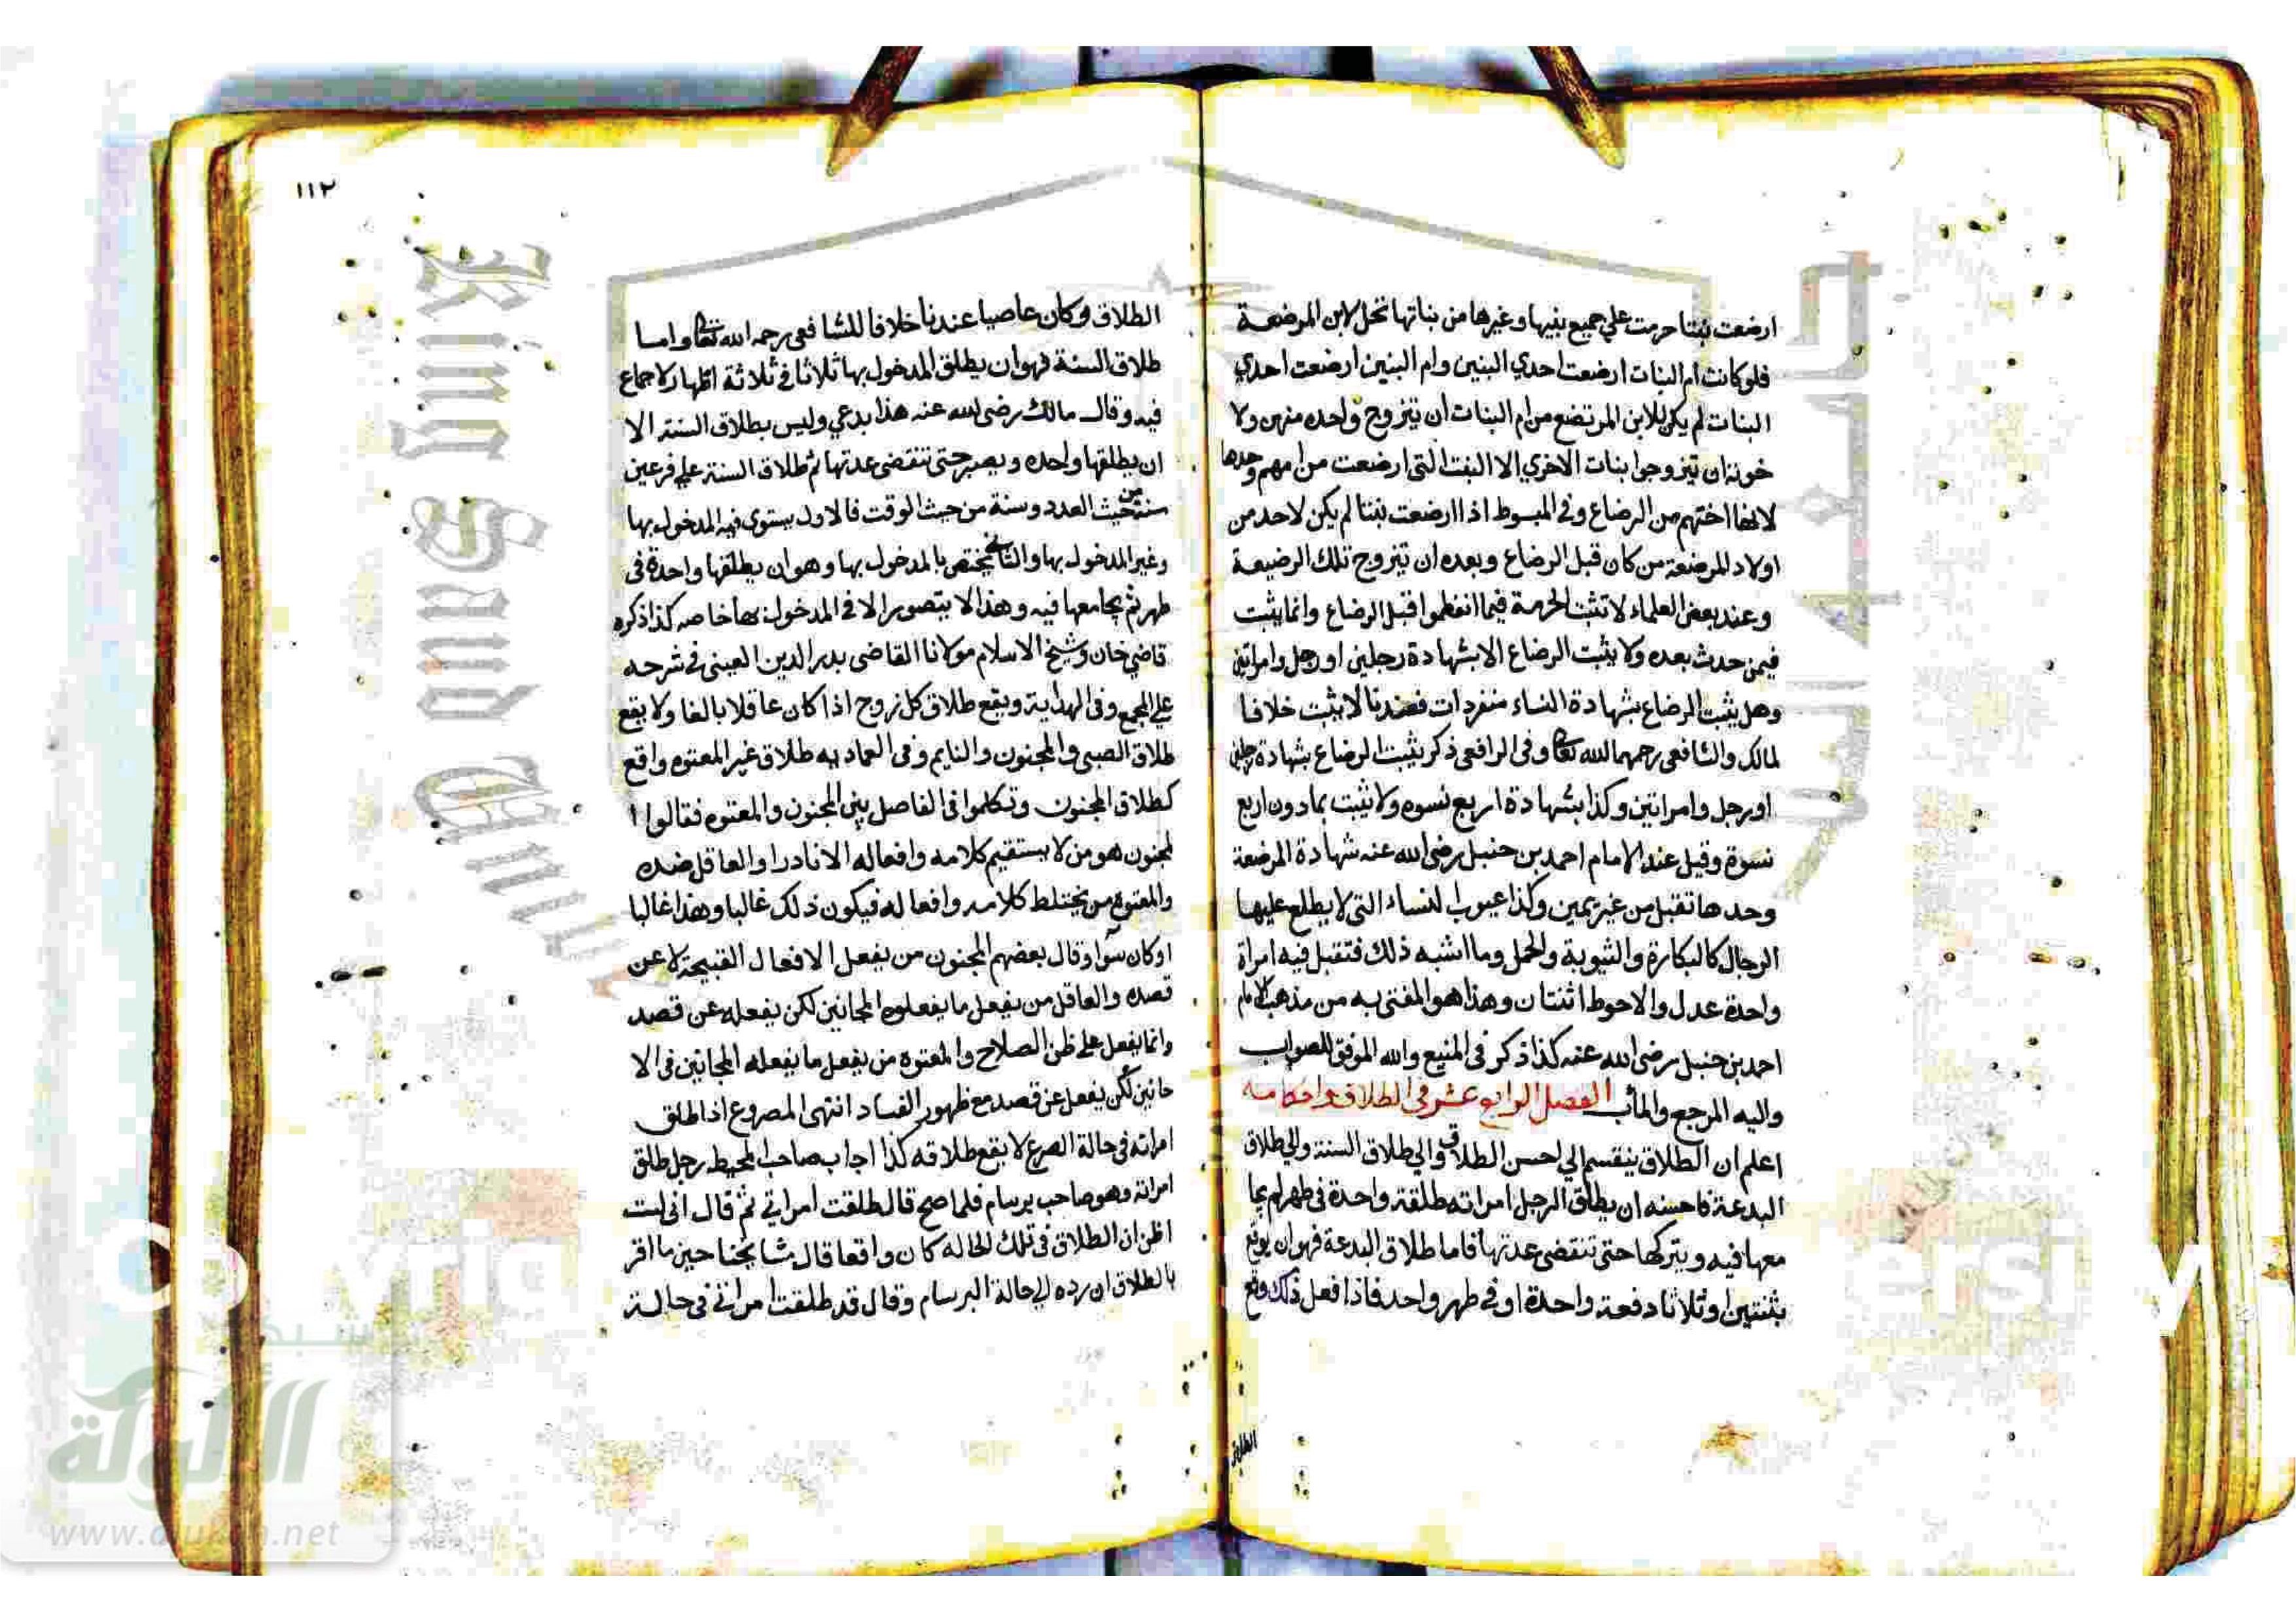 ارضعت بنتا حرمت علي جميع بنيها وغيرها من بناتها تحل لابن المرضعة
فلو كانت ام البنات ارضعت احدي البنين وام البنين ارضعت احدي
البنات لم يكن للابن المرتضع من ام البنات ان يتزوج واحده منهن ولا
خوته ان يتزوجوا بنات الاخري الا البنت التي ارضعت من امهم وحدها
لانها اختهم من الرضاع وفي المبسوط اذا ارضعت بنتا لم يكن لاحد من
اولاد المرضعة من كان قبل الرضاع وبعده ان يتزوج تلك الرضيعة
وعند بعض العلماء لا تثبت الحرمة فيما انفطموا قبل الرضاع وانما يثبت
فيمن حدث بعده ولا يثبت الرضاع الا بشهادة رجلين او رجل وامراتين
وهل يثبت الرضاع بشهادة النساء منفردات فعندنا لا يثبت خلافا
لمالك والشافعي رحمهما الله تعالى وفي الرافعي ذكر يثبت الرضاع بشهادة رجلين
او رجل وامراتين وكذا بشهادة اربع نسوه ولا يثبت بما دون اربع
نسوة وقيل عند الامام احمد بن حنبل رضي الله عنه شهادة المرضعة
وحدها تقبل من غير يمين وكذا عيوب النساء التي لا يطلع عليها
الرجال كالبكارة والثيوبة والحمل وما اشبه ذلك فتقبل فيه امراة
واحدة عدل والاحوط اثنتان وهذا هو المفتي به من مذهب الامام
احمد بن حنبل رضي الله عنه كذا ذكر في المنبع والله الموفق للصواب
واليه المرجع والمآب الفصل الرابع عشر في الطلاق واحكامه
اعلم ان الطلاق ينقسم الي احسن الطلاق والي طلاق السنة والي طلاق
البدعة فاحسنه ان يطلق الرجل امراته طلقة واحدة في طهر لم يجا
معها فيه ويتركها حتي تنقضي عدتها فاما طلاق البدعة فهو ان يوقع
بثنتين او ثلاثا دفعة واحدة او في طهر واحد فاذا فعل ذلك وقع
الطلاق
١١٢
الطلاق وكان عاصيا عندنا خلافا للشافعي رحمه الله تعالى واما
طلاق السنة فهو ان يطلق المدخول بها ثلاثا في ثلاثة اطهار لا جماع
فيه وقال مالك رضي الله عنه هذا بدعي وليس بطلاق السنة الا
ان يطلقها واحده ويصبر حتي تنقضي عدتها ثم طلاق السنة علي فرعين
سنة من حيث العدد وسنة من حيث الوقت فالاول يستوي فيه المدخول بها
وغير المدخول بها والثاني يختص بالمدخول بها وهو ان يطلقها واحدة في
طهر ثم يجامعها فيه وهذا لا يتصور الا في المدخول بها خاصه كذا ذكره
قاضي خان وشيخ الاسلام مولانا القاضي بدر الدين العيني في شرحه
علي المجمع وفي الهداية ويقع طلاق كل زوج اذا كان عاقلا بالغا ولا يقع
طلاق الصبي والمجنون والنايم وفي العماديه طلاق غير المعتوه واقع
كطلاق المجنون وتكلموا في الفاصل بين المجنون والمعتوه فقالوا ا
لمجنون هو من لا يستقيم كلامه وافعاله الا نادرا والعاقل ضده
والمعتوه من يختلط كلامه وافعاله فيكون ذلك غالبا وهذا غالبا
او كان سوآ وقال بعضهم المجنون من يفعل الافعال القبيحة لا عن
قصده والعاقل من يفعل ما يفعلوه المجانين لكن يفعله عن قصد
وانما يفعل علي ظن الصلاح والمعتوه من يفعل ما يفعله المجانين في الا
حانين لكن يفعل عن قصد مع ظهور الفساد انتهي المصروع اذا طلق
امراته في حالة الصرع لا يقع طلاقه كذا اجاب صاحب المحيط رجل طلق
امراته وهو صاحب برسام فلما صح قال طلقت امراتي ثم قال اني لست
اظن ان الطلاق في تلك الحاله كان واقعا قال مشايخنا حين ما اقر
بالطلاق ان رده الي حالة البرسام وقال قد طلقت امراتي في حالة
King Saud University
شبكة
الألوكة
www.alukah.net